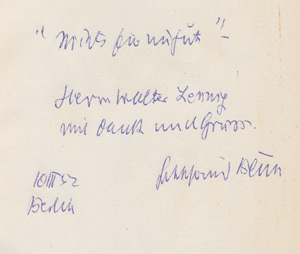 "Nichts für ungut"!-
Herrn Walter Lennig
mit Dank und Gruss.
Gottfried Benn
III 52
Berlin